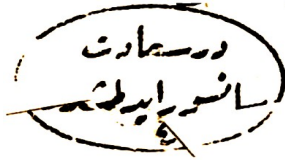 درسعادت
سانسور ایدلمشدر
٤